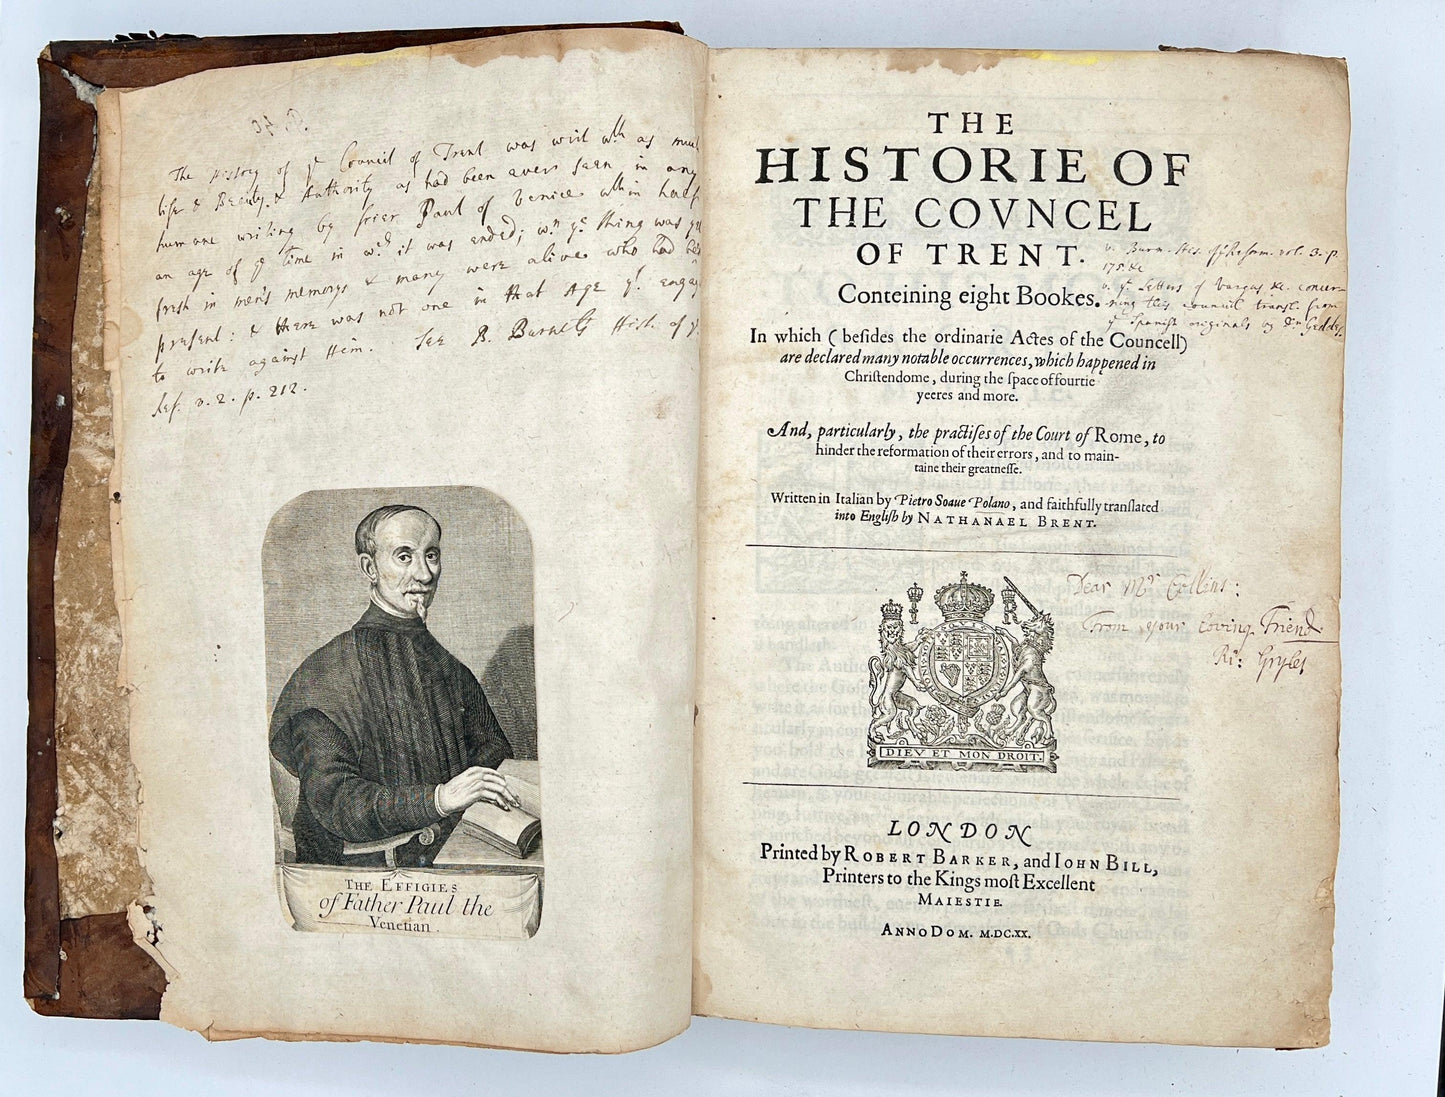 The History of yͤ Council of Trent was writ wͭh as much
life & Beauty & Authority as had been ever seen in any
humane writing by frier Paul of Venice wͭhin half
an age of yͤ time in wͨh it was ended; wⁿ yͤ thing was yet
fresh in men's memorys & many were alive who had been
present: & there was not one in that Age yͭ engag
to write against Him. See B. Burnets Hist. of yͤ
Ref. v. 2. p. 212.
THE EFFIGIES
of Father Paul the
Venetian.
THE
HISTORIE OF
THE COVNCEL
OF TRENT.
Conteining eight Bookes.
v. Burn. Hes. of yͤ Reform. vol. 3. p.
175 &c
v. yͤ Letters of Vargas &c. concer-
ning this council transl. from
yͤ Spanish originals by Dʳ Geddes.
In which (beſides the ordinarie Actes of the Councell)
are declared many notable occurrences, which happened in
Chriſtendome, during the ſpace of fourtie
yeeres and more.
And, particularly, the practiſes of the Court of Rome, to
hinder the reformation of their errors, and to main-
taine their greatneſſe.
Written in Italian by Pietro Soaue Polano, and faithfully tranſlated
into Engliſh by NATHANAEL BRENT.
I R
DIEV ET MON DROIT.
Dear Mʳ Collins:
From your loving Friend
Ri: Gryles
LONDON
Printed by ROBERT BARKER, and IOHN BILL,
Printers to the Kings moſt Excellent
MAIESTIE.
ANNO DOM. M.DC.XX.